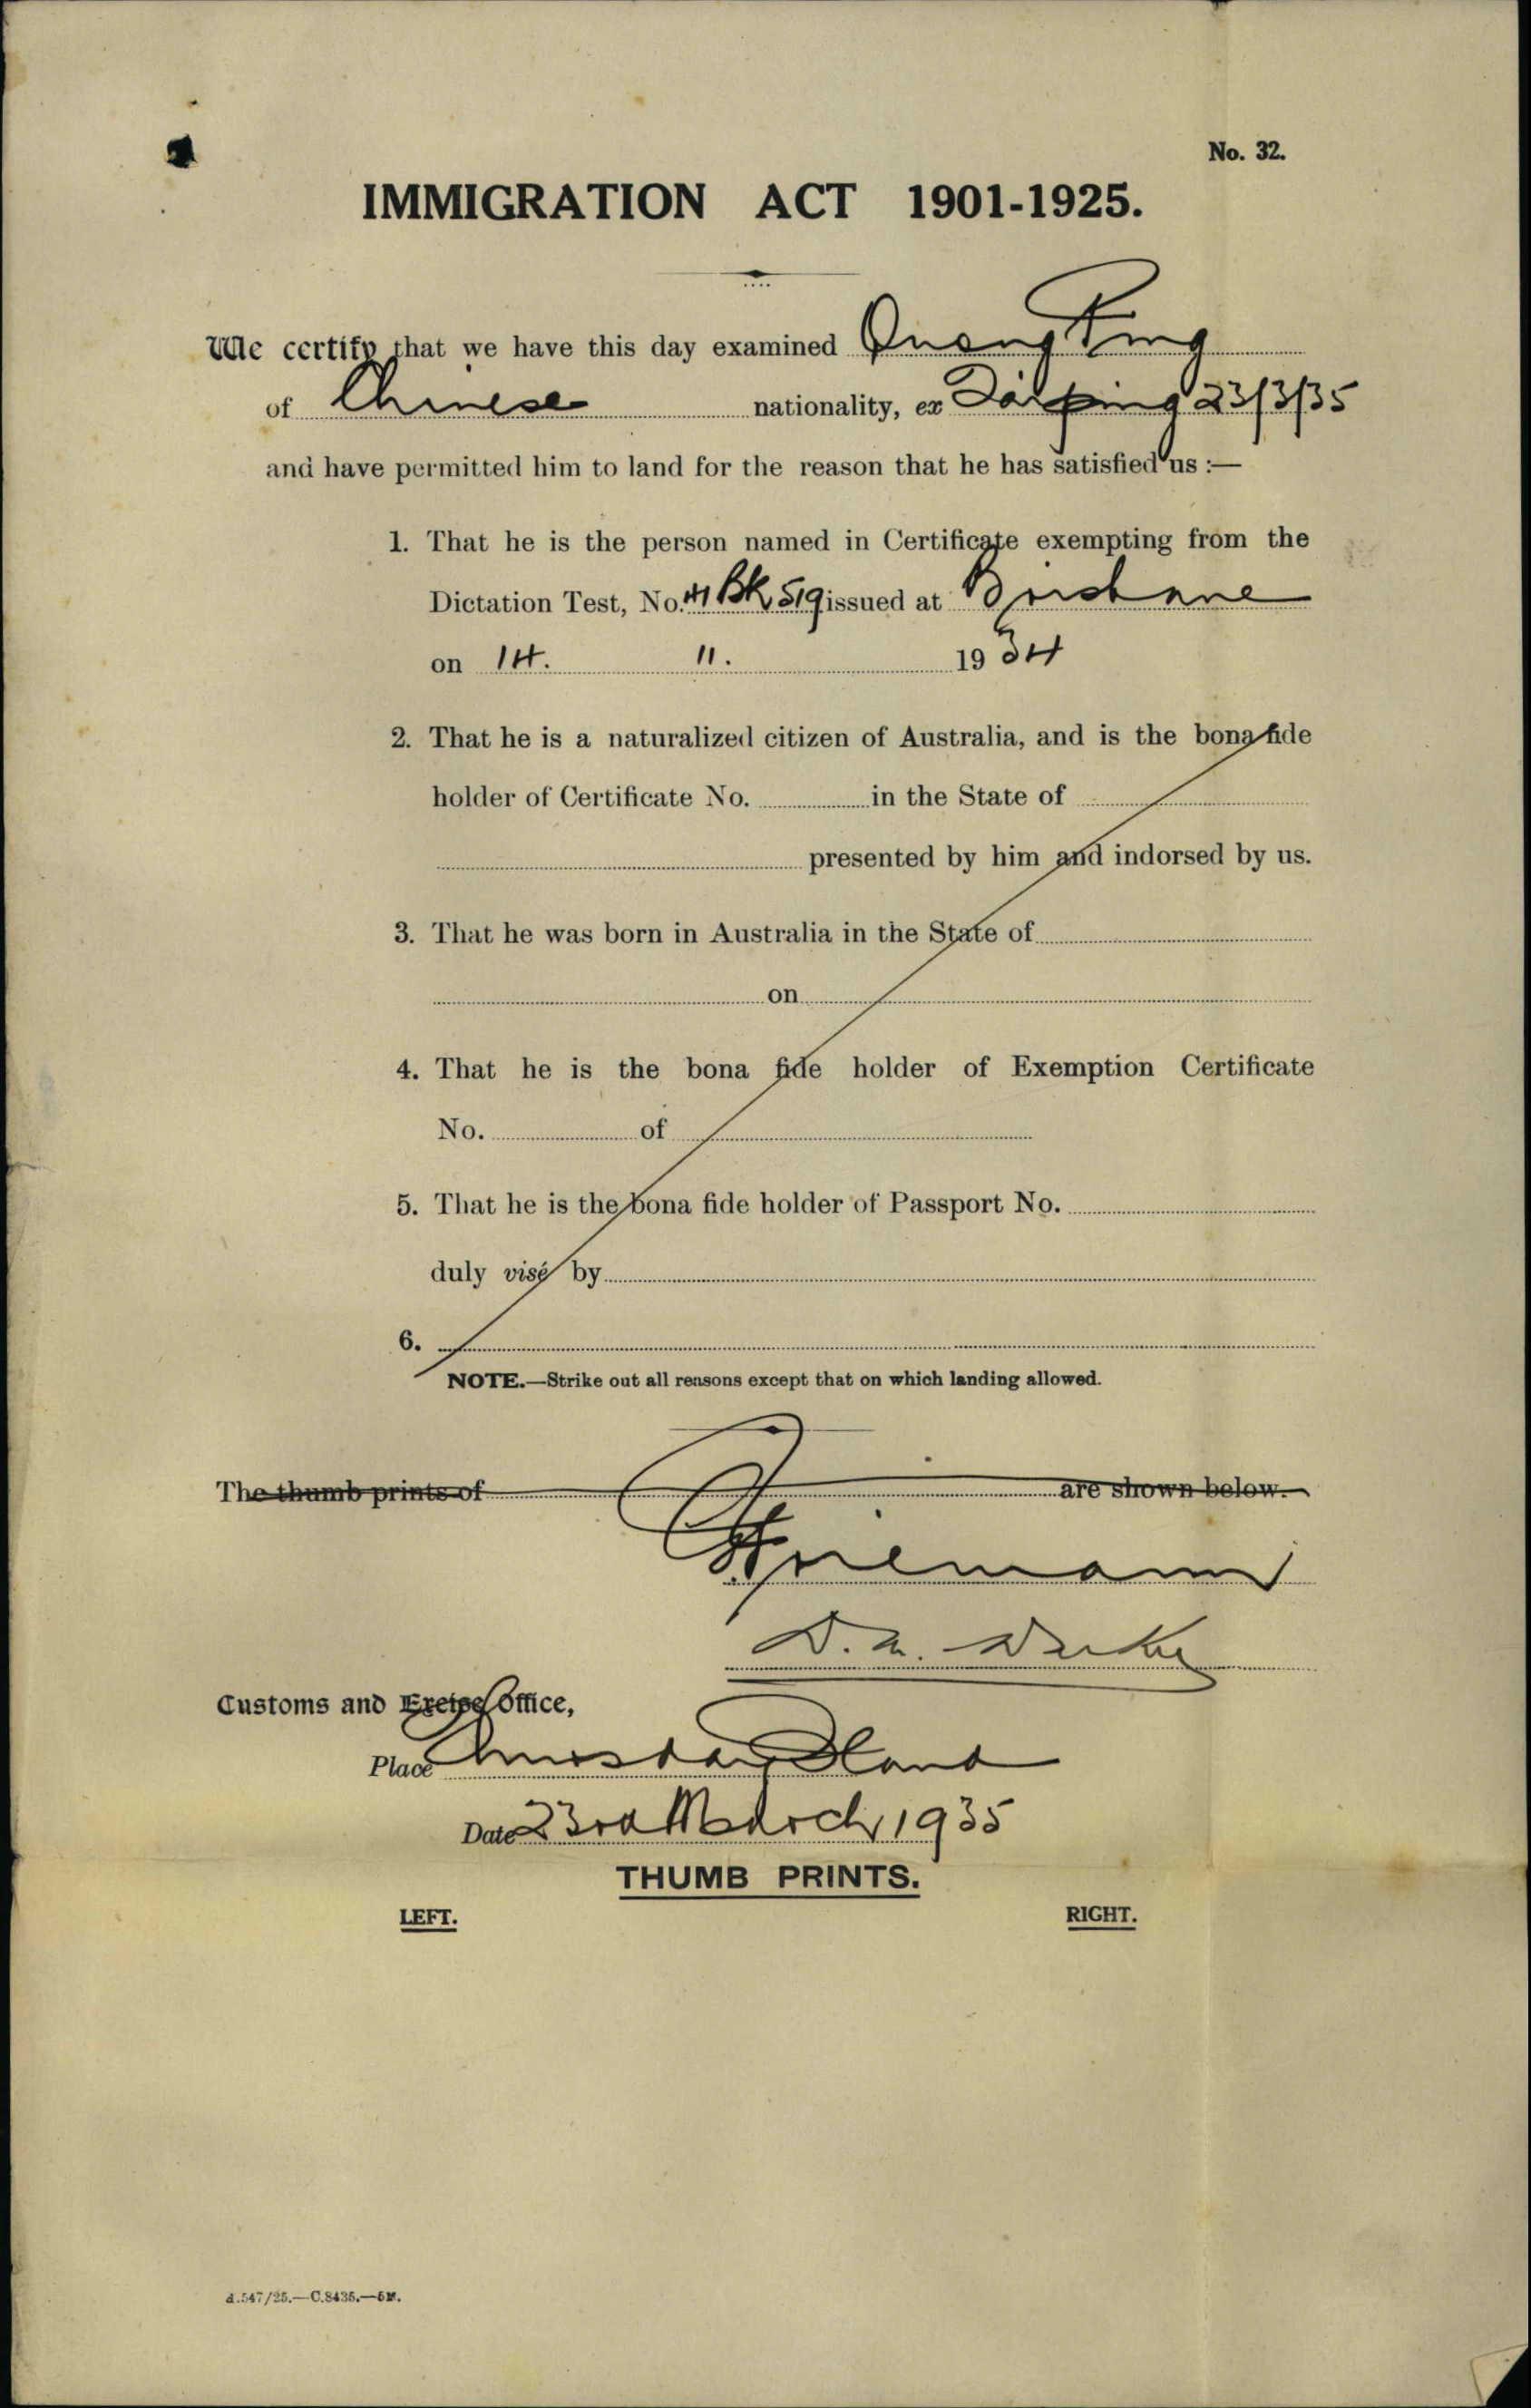 No. 32.
IMMIGRATION ACT 1901-1925.
We certify that we have this day examined Quong Ping
of Chinese nationality, ex Taiping 23/3/35
and have permitted him to land for the reason that he has satisfied us :—
1. That he is the person named in Certificate exempting from the
Dictation Test, No. Bk 519 issued at Brisbane
on 14. 11. 1934
2. That he is a naturalized citizen of Australia, and is the bona fide
holder of Certificate No. in the State of
presented by him and indorsed by us.
3. That he was born in Australia in the State of
on
4. That he is the bona fide holder of Exemption Certificate
No. of
5. That he is the bona fide holder of Passport No.
duly visé by
6.
NOTE.—Strike out all reasons except that on which landing allowed.
The thumb prints of are shown below.
Customs and Excise Office,
Place Thursday Island
Date 23rd March 1935
THUMB PRINTS.
LEFT. RIGHT.
d.547/25.—C.8435.—5M.